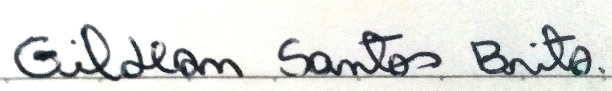 Gildean Santos Brito.